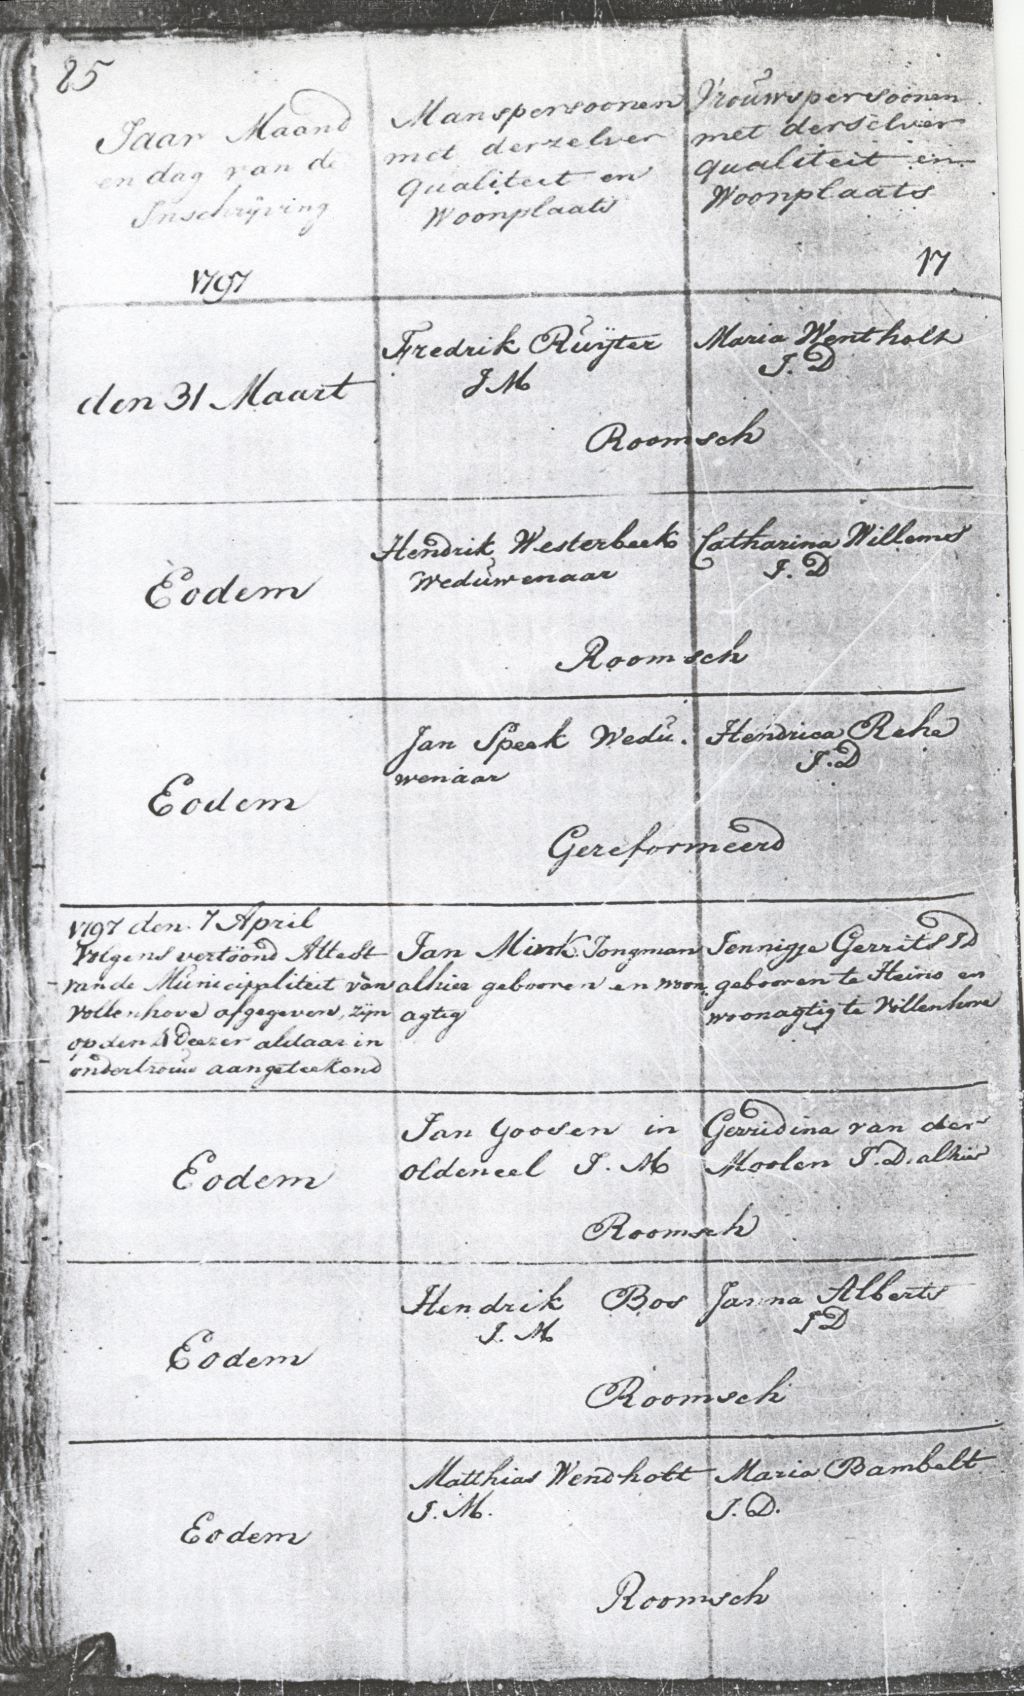 85
Jaar Maand
en dag van de
Inschrijving
1797
Manspersoonen
met derzelver
qualiteit en
Woonplaats
Vrouwspersoonen
met derselver
qualiteit en
Woonplaats
17
den 31 Maart
Fredrik Ruÿter
J M
Maria Wentholt
J. D
Roomsch
Eodem
Hendrik Westerbeek
Weduwenaar
Catharina Willems
J. D
Roomsch
Eodem
Jan Speek Wedu.
wenaar
Hendrica Rehe
J. D
Gereformeerd
1797 den 7 April
Volgens vertoond Attest
van de Municippliteit van
Vollenhove afgegeven, zijn
op den deezer aldaar in
ondertrouw aangeteekend
Jan Mink Jongman
alhier gebooren en woon
agtig
Jennigje Gerrits J D
gebooren te Heino en
woonagtig te Vollenhove
Eodem
Jan Goosen in
Oldeneel J. M
Gerridina van der
Moolen J. D. alhier
Roomsch
Eodem
Hendrik Bos
J. M
Janna Alberts
J D
Roomsch
Eodem
Matthias Wendholt
J. M.
Maria Bambelt
J. D.
Roomsch